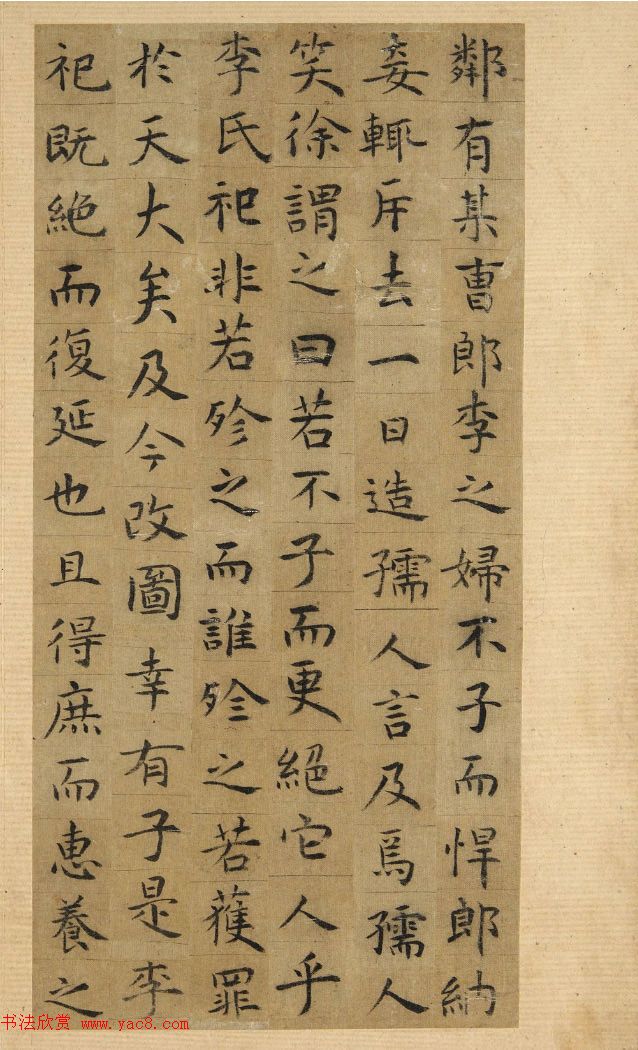 鄰有某曹郎李之婦不子而悍郎納
妾輒斥去一日造孺人言及焉孺人
笑徐謂之曰若不子而更絕它人乎
李氏祀非若殄之而誰殄之若獲罪
於天大矣及今改圖幸有子是李
祀既絕而復延也且得庶而惠養之
书法欣赏 www.yac8.com